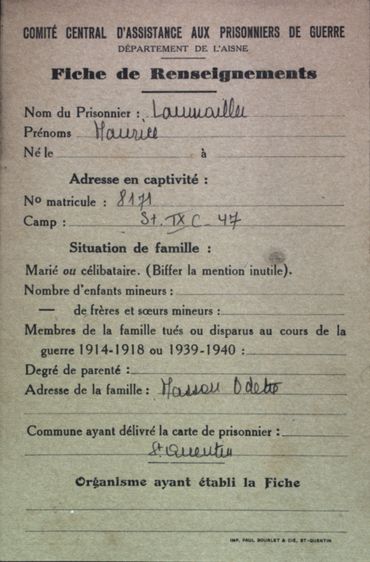 COMITÉ CENTRAL D'ASSISTANCE AUX PRISONNIERS DE GUERRE
DÉPARTEMENT DE L'AISNE
Fiche de Renseignements
Nom du Prisonnier :
Prénoms Maurice
Né le à
Adresse en captivité :
No matricule : 8171
Camp : St. IX C - 47
Situation de famille :
Marié ou célibataire. (Biffer la mention inutile).
Nombre d'enfants mineurs :
— de frères et sœurs mineurs :
Membres de la famille tués ou disparus au cours de la
guerre 1914-1918 ou 1939-1940 :
Degré de parenté :
Adresse de la famille : Masson Odette
Commune ayant délivré la carte de prisonnier :
St Quentin
Organisme ayant établi la Fiche
IMP. PAUL BOURLET & CIE, ST-QUENTIN